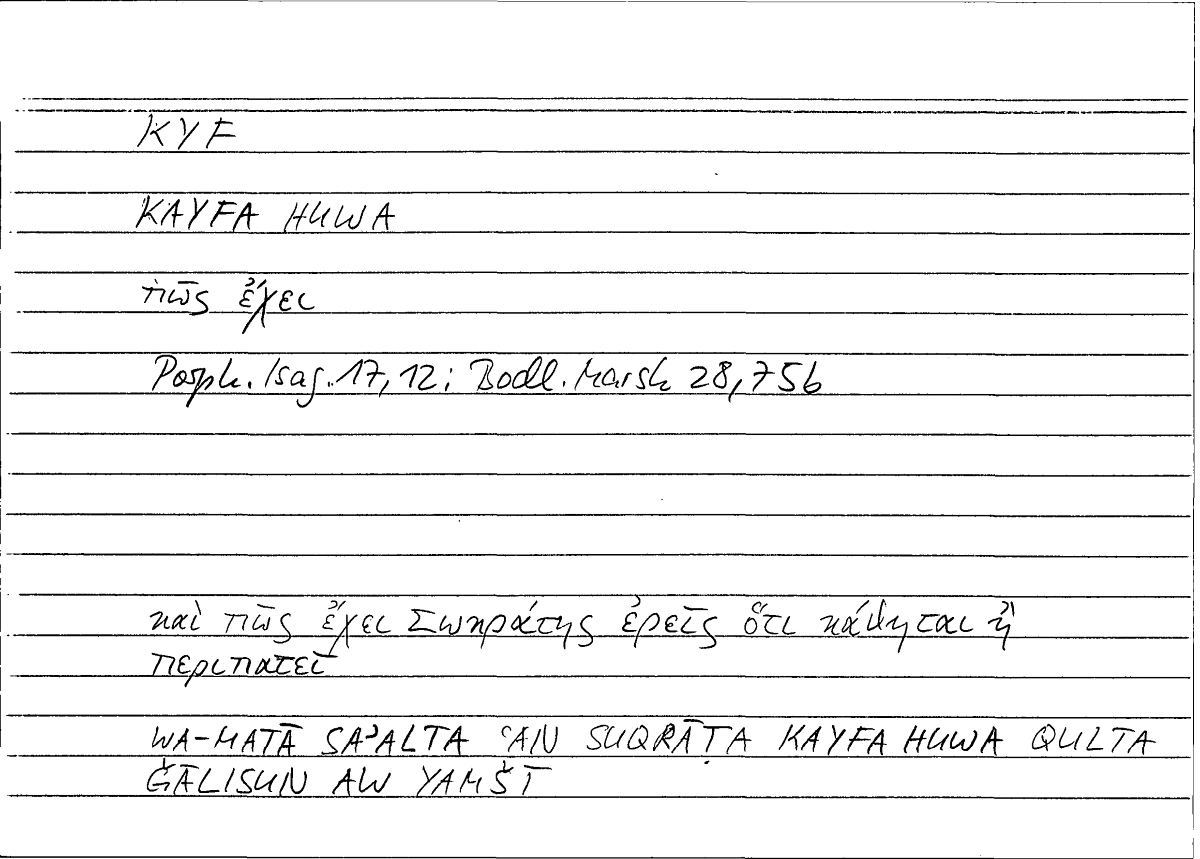 KYF
KAYFA HUWA
πῶς ἔχει
Porph. Isag. 17, 12; Bodl. Marsh 28, 75b
καὶ πῶς ἔχει Σωκράτης ἐρεῖς ὅτι κάθηται ἢ
περιπατεῖ
WA-MATĀ SAʾALTA ʿAN SUQRĀṬA KAYFA HUWA QULTA
ǦĀLISUN AW YAMŠĪ